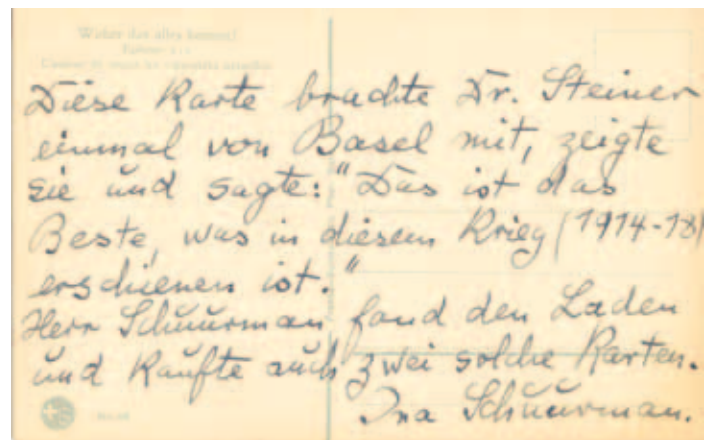 Woher das alles kommt?
Diese Karte brachte Dr. Steiner
einmal von Basel mit, zeigte
sie und sagte: "Das ist das
Beste, was in diesem Krieg (1914-18)
erschienen ist."
Herr Schuurman fand den Laden
und kaufte auch zwei solche Karten.
Ina Schuurman.